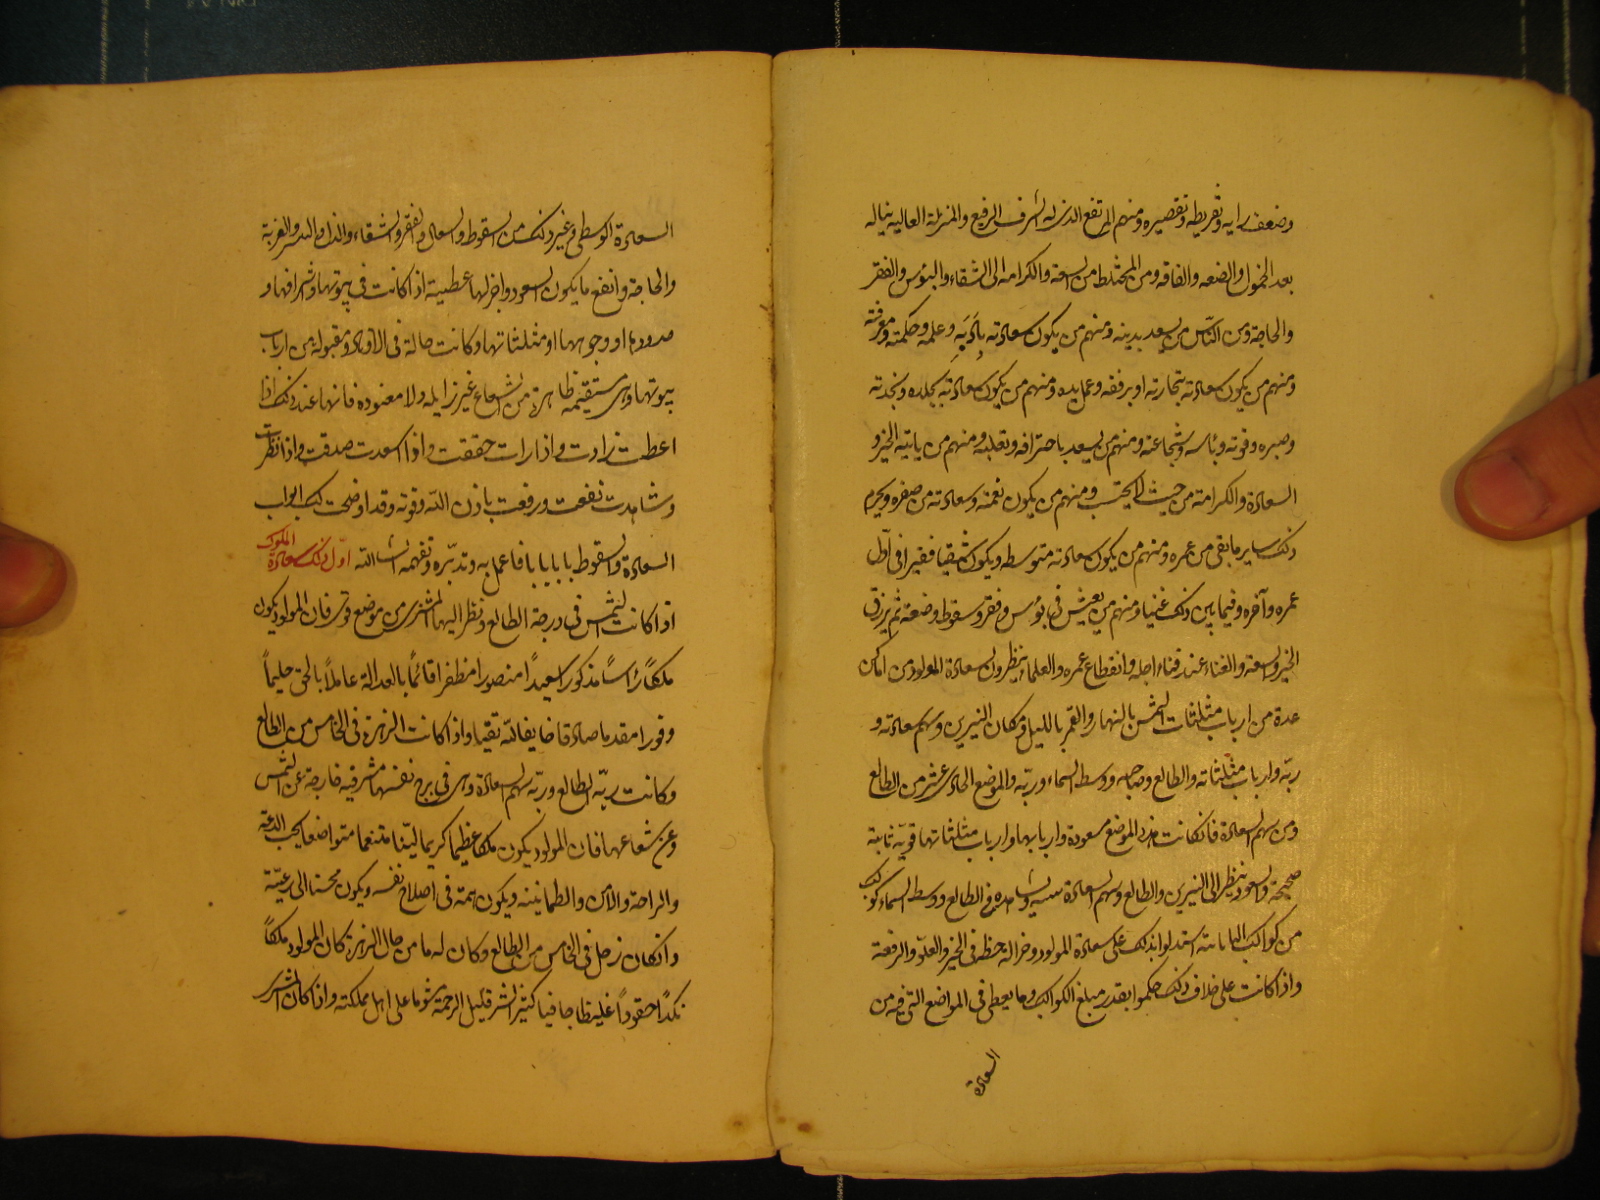 وضعف رايه وتفريطه وتقصيره ومنهم المرتفع الذى له الشرف الرفيع والمنزلة العاليه يناله
بعد الخمول والضعه والفاقه ومن المختلط من السعة والكرامة الى الشقاء والبؤس والفقر
والحاجة ومن النّاس من يسعد بدينه ومنهم من يكون سعادته بأدبه وعلمه وحكمته ومعرفته
ومنهم من يكون سعادته بتجارته او برفقه وعمل يديه ومنهم من يكون سعادته بجلده ونجدته
وصبره وقوته وباسه وشجاعته ومنهم من يسعد باحترافه وتقلبه ومنهم من ياتيه الخير و
السعادة والكرامة من حيث لا يحتسب ومنهم من يكون نعمته وسعادته من صغره ويحرم
ذلك ساير ما بقى من عمره ومنهم من يكون سعادته متوسطه ويكون شقيا فقيرا فى اوّل
عمره وآخره وفيما بين ذلك غنيا ومنهم من يعيش فى بؤس وفقر وسقوط وضعة ثم يرزق
الخير والسعة والغناء عند فناء اجله وانقطاع عمره والعلماء ينظرون لسعادة المولود من اماكن
عدة من ارباب مثلثات الشمس بالنهار والقمر بالليل ومكان النيرين وسهم سعادته و
ربّه وارباب مثلثاته والطالع وصاحبه ووسط السماء وربّه والموضع الحادى عشر من الطالع
ومن سهم السعادة فان كانت هذه المواضع مسعودة واربابها وارباب مثلثاتها قويّة ثابتة
صحيحة والسعود ينظر الى النيرين والطالع وسهم السعادة وفى الطالع ووسط السماء كوكب
من كواكب البابانية استدلوا بذلك على سعادة المولود وجزالة حظه فى الخير والعلوّ والرفعة
واذا كانت على خلاف ذلك حكموا بقدر مبلغ الكواكب وما يعطى فى المواضع التى هى فيه من
السعادة
السعادة الوسطى وغير ذلك من السقوط والسعال والفقر والشقاء والذل والغربة
والحاجة وانفع ما يكون السعود واجزلها عطية اذا كانت فى بيوتها واشرافها و
حدودها او وجوهها او مثلثاتها وكانت حالة فى الاوتاد ومقبولة من ارباب
بيوتها وهى مستقيمة ظاهرة من الشعاع غير زايله ولا منحوسة فانها عند ذلك اذا
اعطت زادت واذا رات حققت واذا اسعدت صدقت واذا نظرت
وشاهدت نفعت ورفعت باذن اللّه وقوته وقد اوضحت لك ابواب
السعادة والسقوط بابا بابا فاعمل به وتدبّره وتفهمه ان شا اللّه اوّل ذلك سعادة الملوك
اذا كانت الشمس فى درجة الطالع ونظر اليها المشترى من موضع قوى فان المولود يكون
ملكاً رئساً مذكورا سعيداً منصورا مظفرا قائمًا بالعدالة عاملاً بالحق حليماً
وقورا مقدما صادقا خايفا للّه تقيا واذا كانت الزهرة فى الخامس من الطالع
وكانت ربّة الطالع وربّة سهم السعادة وهى فى برج نفسها مشرقيه خارجة عن الشمس
وعن شعاعها فان المولود يكون ملكا عظيماً كريما ليّنا متنعما متواضعا يحب الدعة
والراحة والامن والطمانينه ويكون همته فى اصلاح نفسه ويكون محسنا الى رعيّته
وان كان زحل فى الخامس من الطالع وكان له ما من حال الزهرة كان المولود ملكاً
نكداً حقوداً غليظا جافيا كثير الشر قليل الرحمة شوما على اهل مملكته واذا كان المشترى